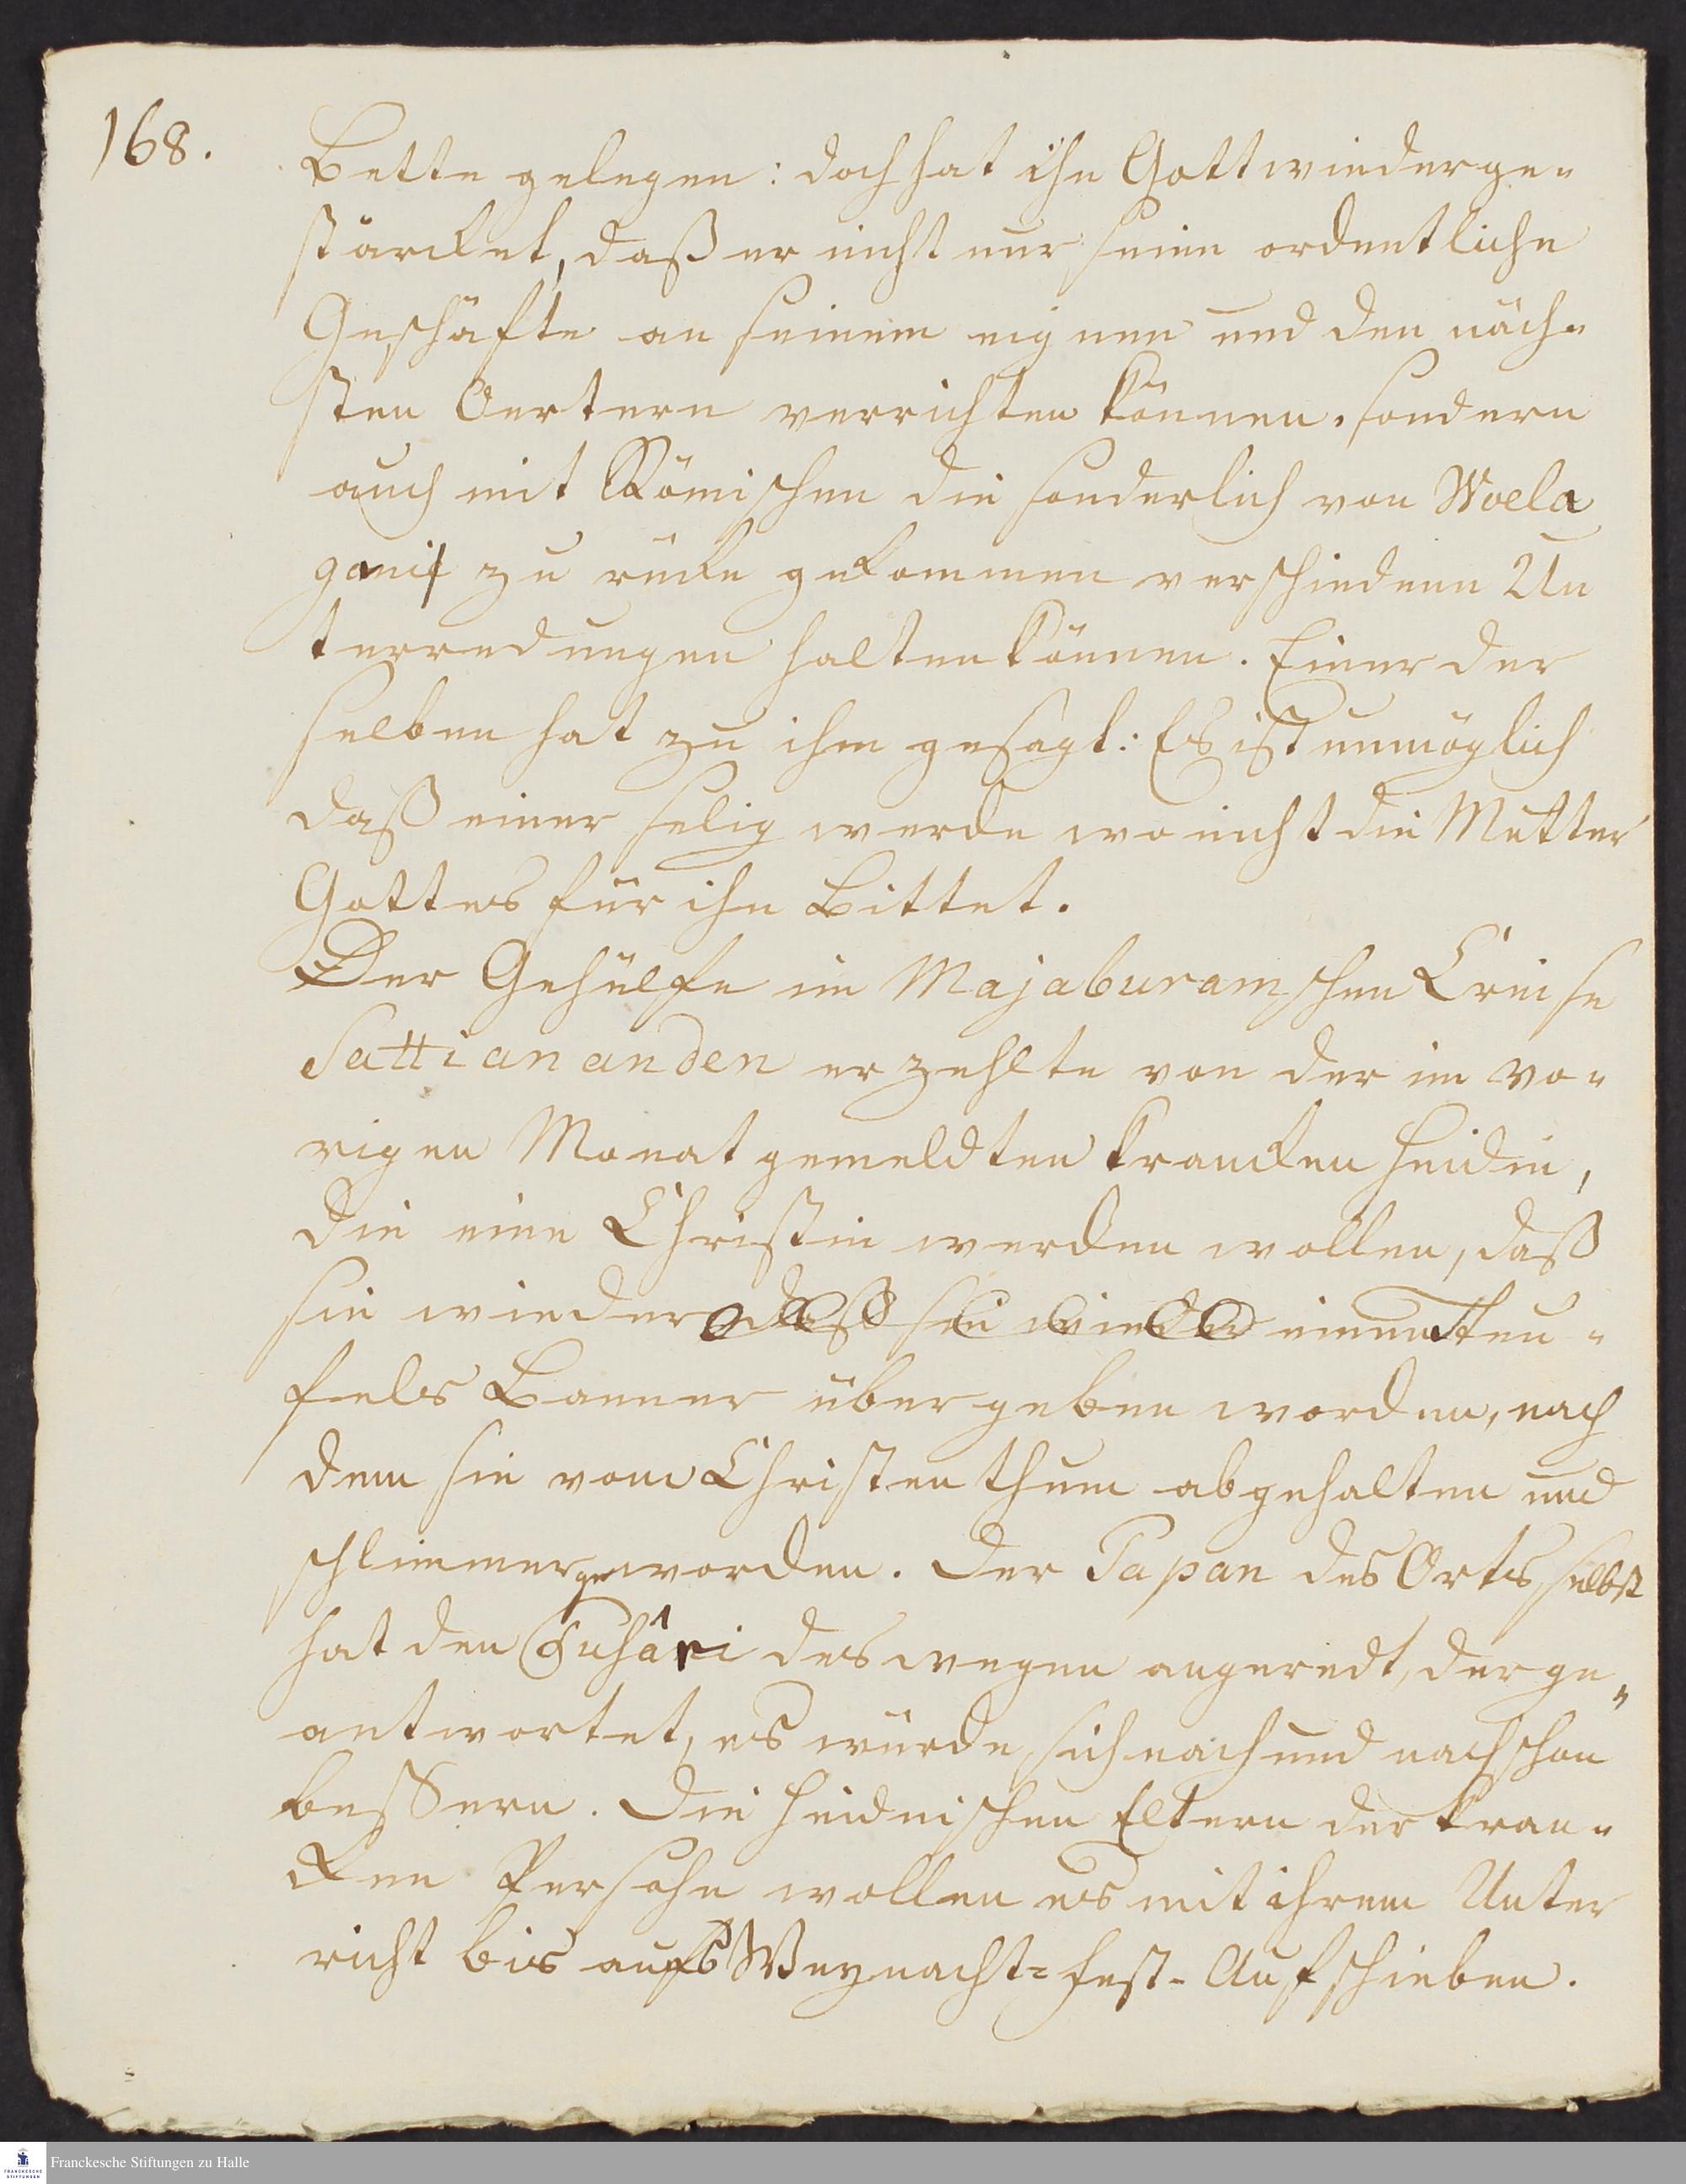 168.
Bette gelegen: doch hat ihn Gott wiederge-
stärcket, daß er nicht nur seine ordentliche
Geschäfte an seinem eignen und den näch-
sten Oertern verrichten können, sondern
auch mit Römischen die sonderlich von Woela
ganif zu rücke gekommen verschiedene Un
terredungen halten können. Einer der
selben hat zu ihm gesagt: Es ist unmöglich
daß einer selig werde wo nicht die Mutter
Gottes für ihn Bittet.
Der Gehülfe im Majaburamschen Creise
Sattiananden erzehlte von der im vo-
rigen Monat gemeldten krancken Heidin,
die eine Christin werden wollen, daß
sie wieder daß sie wieder einem Teu-
fels Banner übergeben worden, nach
dem sie vom Christenthum abgehalten und
schlimmer geworden. Der Papan des Orts selbst
hat den Cuhâri deswegen angeredt, der ge-
antwortet, es würde sich nach und nach schon
beßern. Die heidnischen Eltern der kran-
cken Persohn wollen es mit ihrem Unter
richt bis aufs Weynacht-Fest-Aufschieben.
Franckesche Stiftungen zu Halle
FRANCKESCHE
STIFTUNGEN